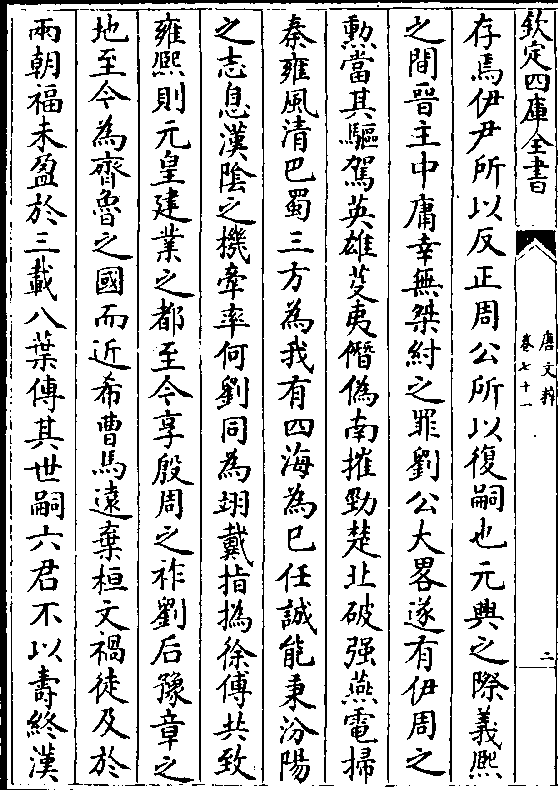 欽定四庫全書
唐文粹
卷七十一
二
存焉伊尹所以反正周公所以復嗣也元興之際義熈
之間晉主中庸幸無桀紂之罪劉公大畧遂有伊周之
勲當其驅駕英雄芟夷僭偽南摧勁楚北破强燕電掃
秦雍風清巴蜀三方為我有四海為已任誠能秉汾陽
之志息漢陰之機牽率何劉同為翊戴指撝徐傅共致
雍熈則元皇建業之都至今享殷周之祚劉后豫章之
地至今為齊魯之國而近希曹馬遠棄桓文禍徒及於
兩朝福未盈於三載八葉傳其世嗣六君不以壽終漢